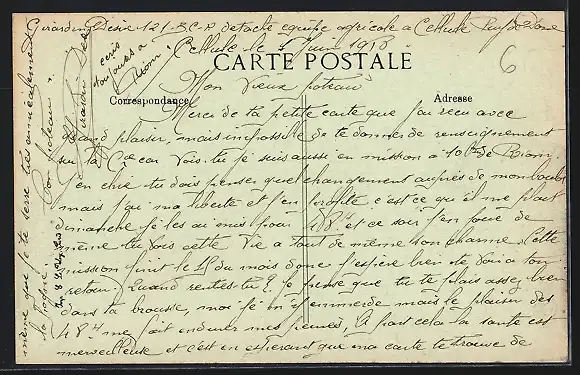 Girardin Désiré 121 - BC-R détaché équipe agricole à Cellule Puy de Dôme
Cellule le 5 Juin 1918
écris toujours à Riom
CARTE POSTALE
Mon vieux poteau
Correspondance
Adresse
6
Merci de ta petite carte que j'ai reçu avec
grand plaisir, mais impossible de te donner de renseignement
sur la Cie car vois-tu je suis aussi en mission à 10k de Riom.
j'en chie tu dois penser quel changement auprès de mon boulot
mais j'ai ma liberté et j'en profite c'est ce qu'il me plaît
dimanche j'ai les au mis pour 48h et ce soir j'en joue de
même tu vois cette vie a tout de même son charme. Cette
mission finit le 15 du mois donc j'espère bien te voir à ton
retour. Quand rentres-tu ? je pense que tu te plais assez bien
dans ta brousse, moi je m'y emmerde mais le plaisir des
48h me fait endurer mes peines, A part cela la santé est
merveilleuse et c'est en espérant que ma carte te trouve de
même que je te serre très amicalement
la
Ton poteau
Girardin Dé